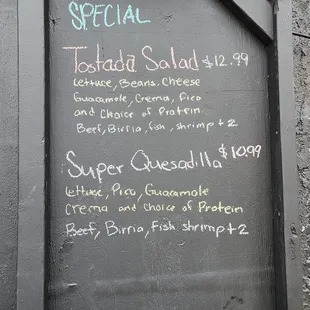 SPECIAL
Tostada Salad $12.99
Lettuce, Beans. Cheese
Guacamole, Crema, Pico
and Choice of Protein
Beef, Birria, fish, shrimp + 2
Super Quesadilla $10.99
Lettuce, Pico, Guacamole
Crema and choice of Protein
Beef, Birria, Fish shrimp + 2